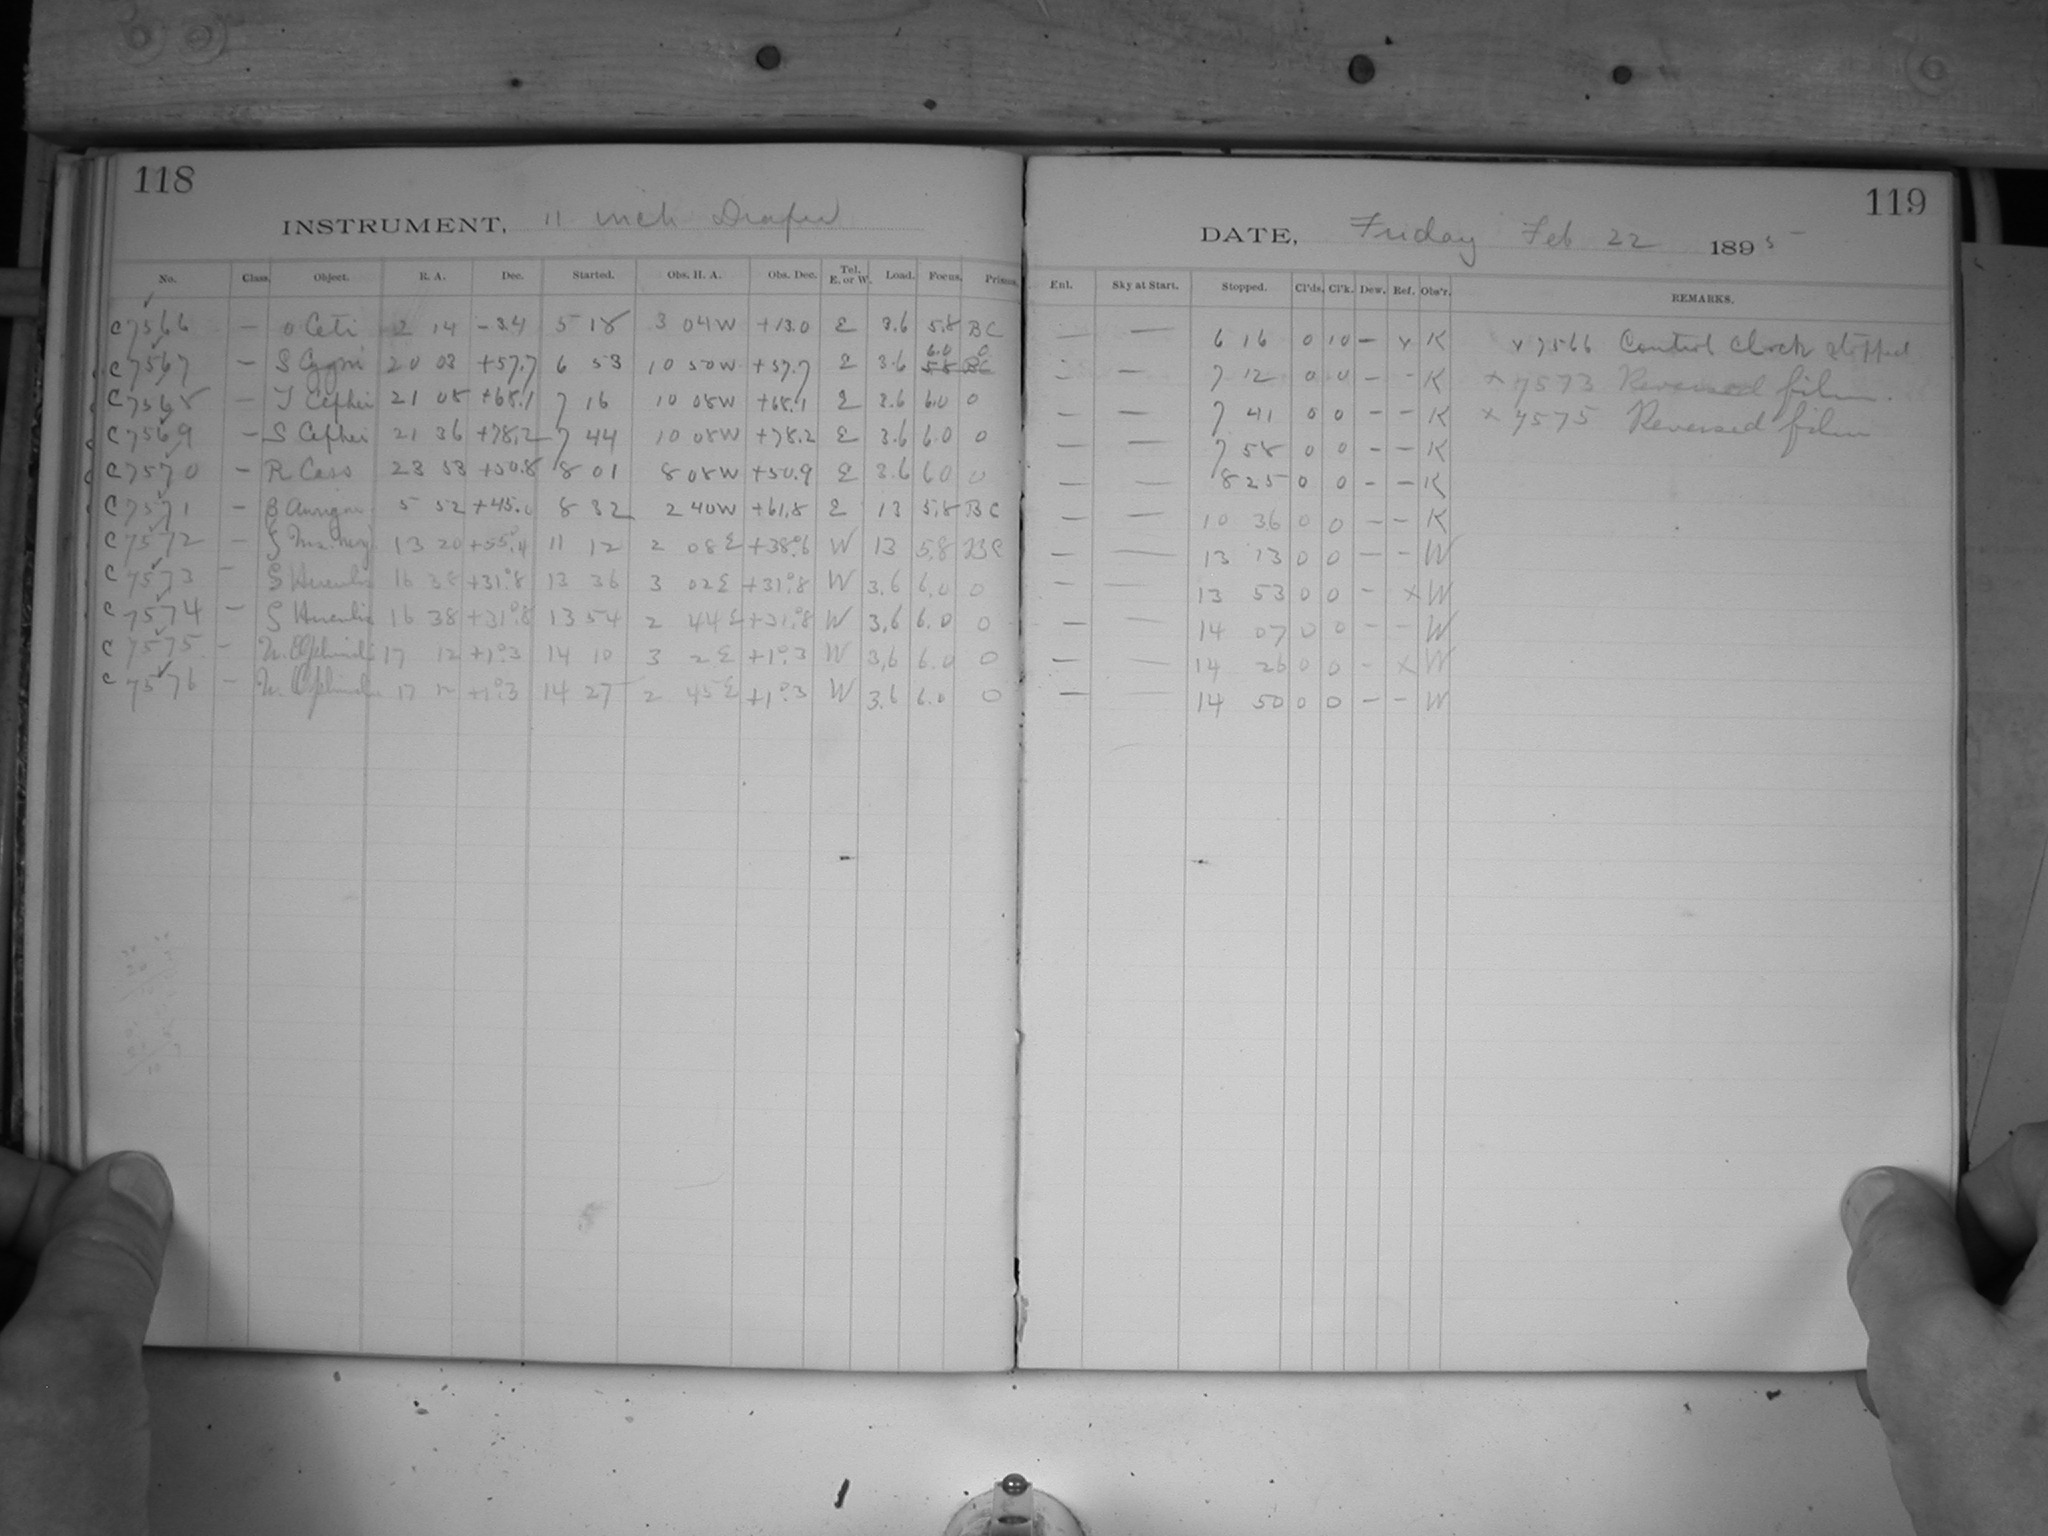 118
INSTRUMENT, 11 inch Draper
No. Class. Object. R. A. Dec. Started. Obs. H. A. Obs. Dec. Tel. E. or W. Load. Focus. Prisms.
C 7566 – o Ceti 2 14 –3.4 5 18 3 04 W +13.0 E 3.6 5.8 BC
C 7567 – S Cygni 20 03 +57.7 6 53 10 50 W +57.7 E 3.6 6.0 0
C 7568 – T Cephei 21 08 +68.1 7 16 10 08 W +68.1 E 3.6 6.0 0
C 7569 – S Cephei 21 36 +78.2 7 44 10 08 W +78.2 E 3.6 6.0 0
C 7570 – R Cass 23 53 +50.8 8 01 8 08 W +50.9 E 3.6 6.0 0
C 7571 – β Aurigae 5 52 +45.0 8 32 2 40 W +61.8 E 13 5.8 BC
C 7572 – ζ 13 20 +55°.4 11 12 2 08 E +38°.6 W 13 5.8 BC
C 7573 – ζ Herculis 16 38 +31°.8 13 36 3 02 E +31°.8 W 3.6 6.0 0
C 7574 – ζ Herculis 16 38 +31°.8 13 54 2 44 E +31°.8 W 3.6 6.0 0
C 7575 – U. Ophiuchi 17 12 +1°.3 14 10 3 2 E +1°.3 W 3.6 6.0 0
C 7576 – U. Ophiuchi 17 12 +1°.3 14 27 2 45 E +1°.3 W 3.6 6.0 0
119
DATE, Friday Feb 22 1895
Enl. Sky at Start. Stopped. Cl'ds. Cl'k. Dew. Ref. Obs'r. REMARKS.
– – 6 16 0 10 – x K x 7566 Control clock stopped
– – 7 12 0 0 – – K x 7573 Reversed film.
– – 7 41 0 0 – – K x 7575 Reversed film
– – 7 58 0 0 – – K
– – 8 25 0 0 – – K
– – 10 36 0 0 – – K
– – 13 13 0 0 – – W
– – 13 53 0 0 – x W
– – 14 07 0 0 – – W
– – 14 26 0 0 – x W
– – 14 50 0 0 – – W